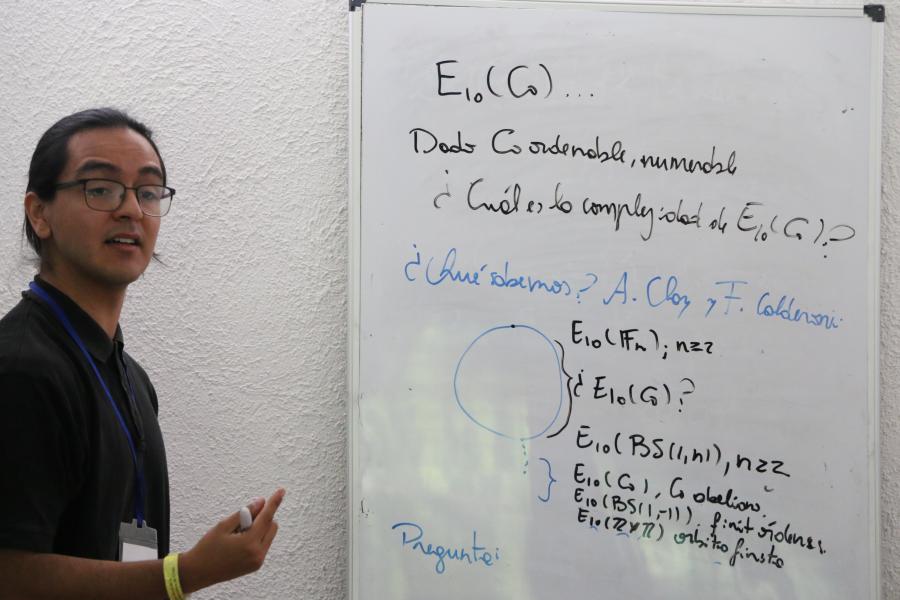 E₁₀(G) ...
Dado G ordenable, numerable
¿Cuál es la complejidad de E₁₀(G)?
¿Qué sabemos? A. Clay y F. Calderoni.
E₁₀(𝔽ₙ); n≥2
¿E₁₀(G)?
E₁₀(BS(1,n)), n≥2
E₁₀(G), G abeliano.
E₁₀(BS(1,-1)), finit órdenes.
E₁₀(ℤ⋊ℤ) órbita finita
Pregunta: